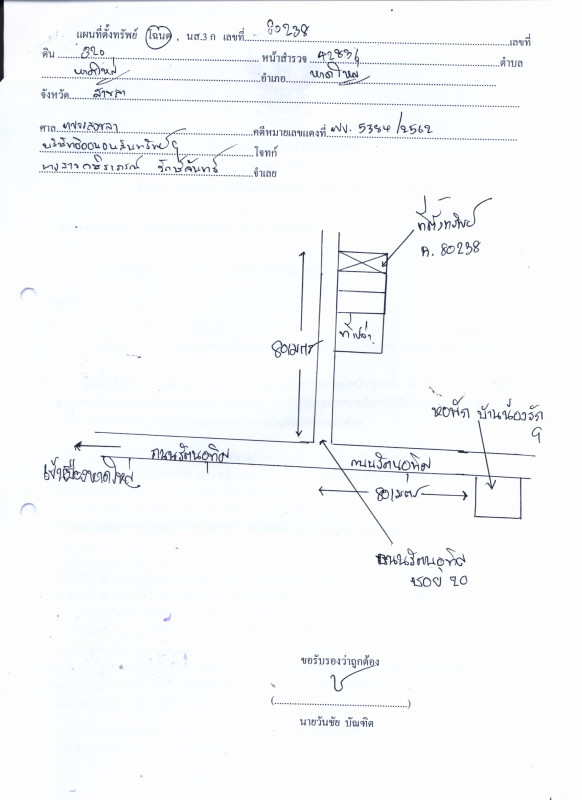 แผนที่ตั้งทรัพย์ โฉนด , นส.3 ก เลขที่ 80238 เลขที่
ดิน 320 หน้าสำรวจ 42836 ตำบล
หาดใหญ่ อำเภอ หาดใหญ่
จังหวัด สงขลา
ศาล คดีหมายเลขแดงที่ ผบ. 5384/2562
โจทก์
จำเลย
ที่ตั้งทรัพย์
ฉ. 80238
ที่เปล่า
80 เมตร
หอพัก บ้านน้องรัก
ถนนรัตนอุทิศ
ถนนรัตนอุทิศ
เข้าเมืองหาดใหญ่
80 เมตร
ถนนรัตนอุทิศ
ซอย 20
ขอรับรองว่าถูกต้อง
(..........)
นายวันชัย บัณฑิต